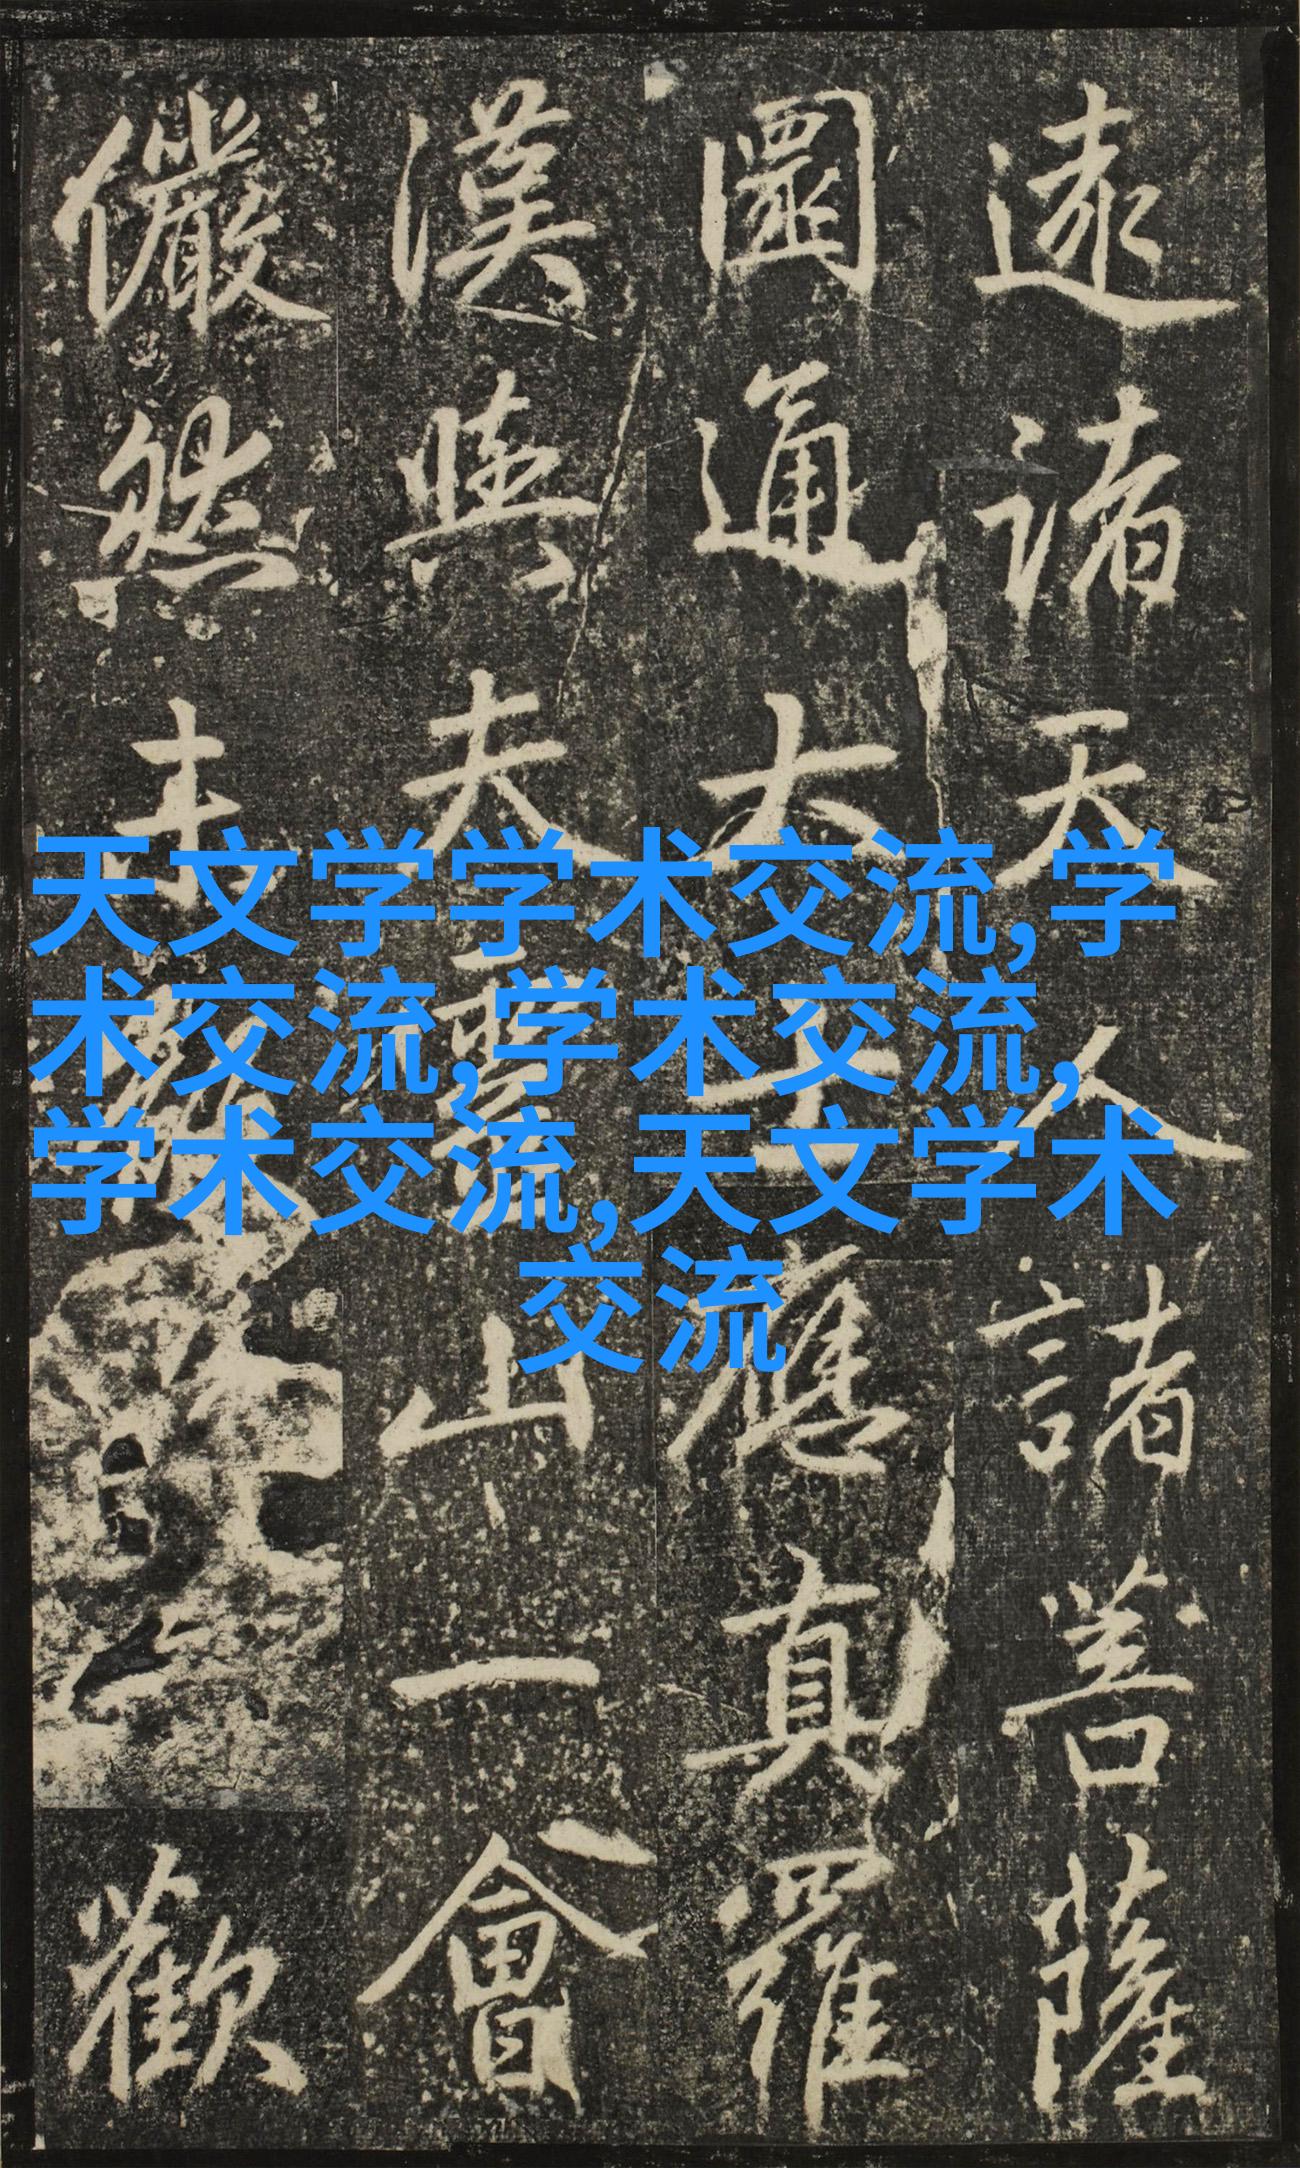 遠諸天人諸菩薩
圓通大士應真羅
漢與夫山一會
儼然未歡
天文学学术交流,学
术交流,学术交流,
学术交流,天文学术
交流